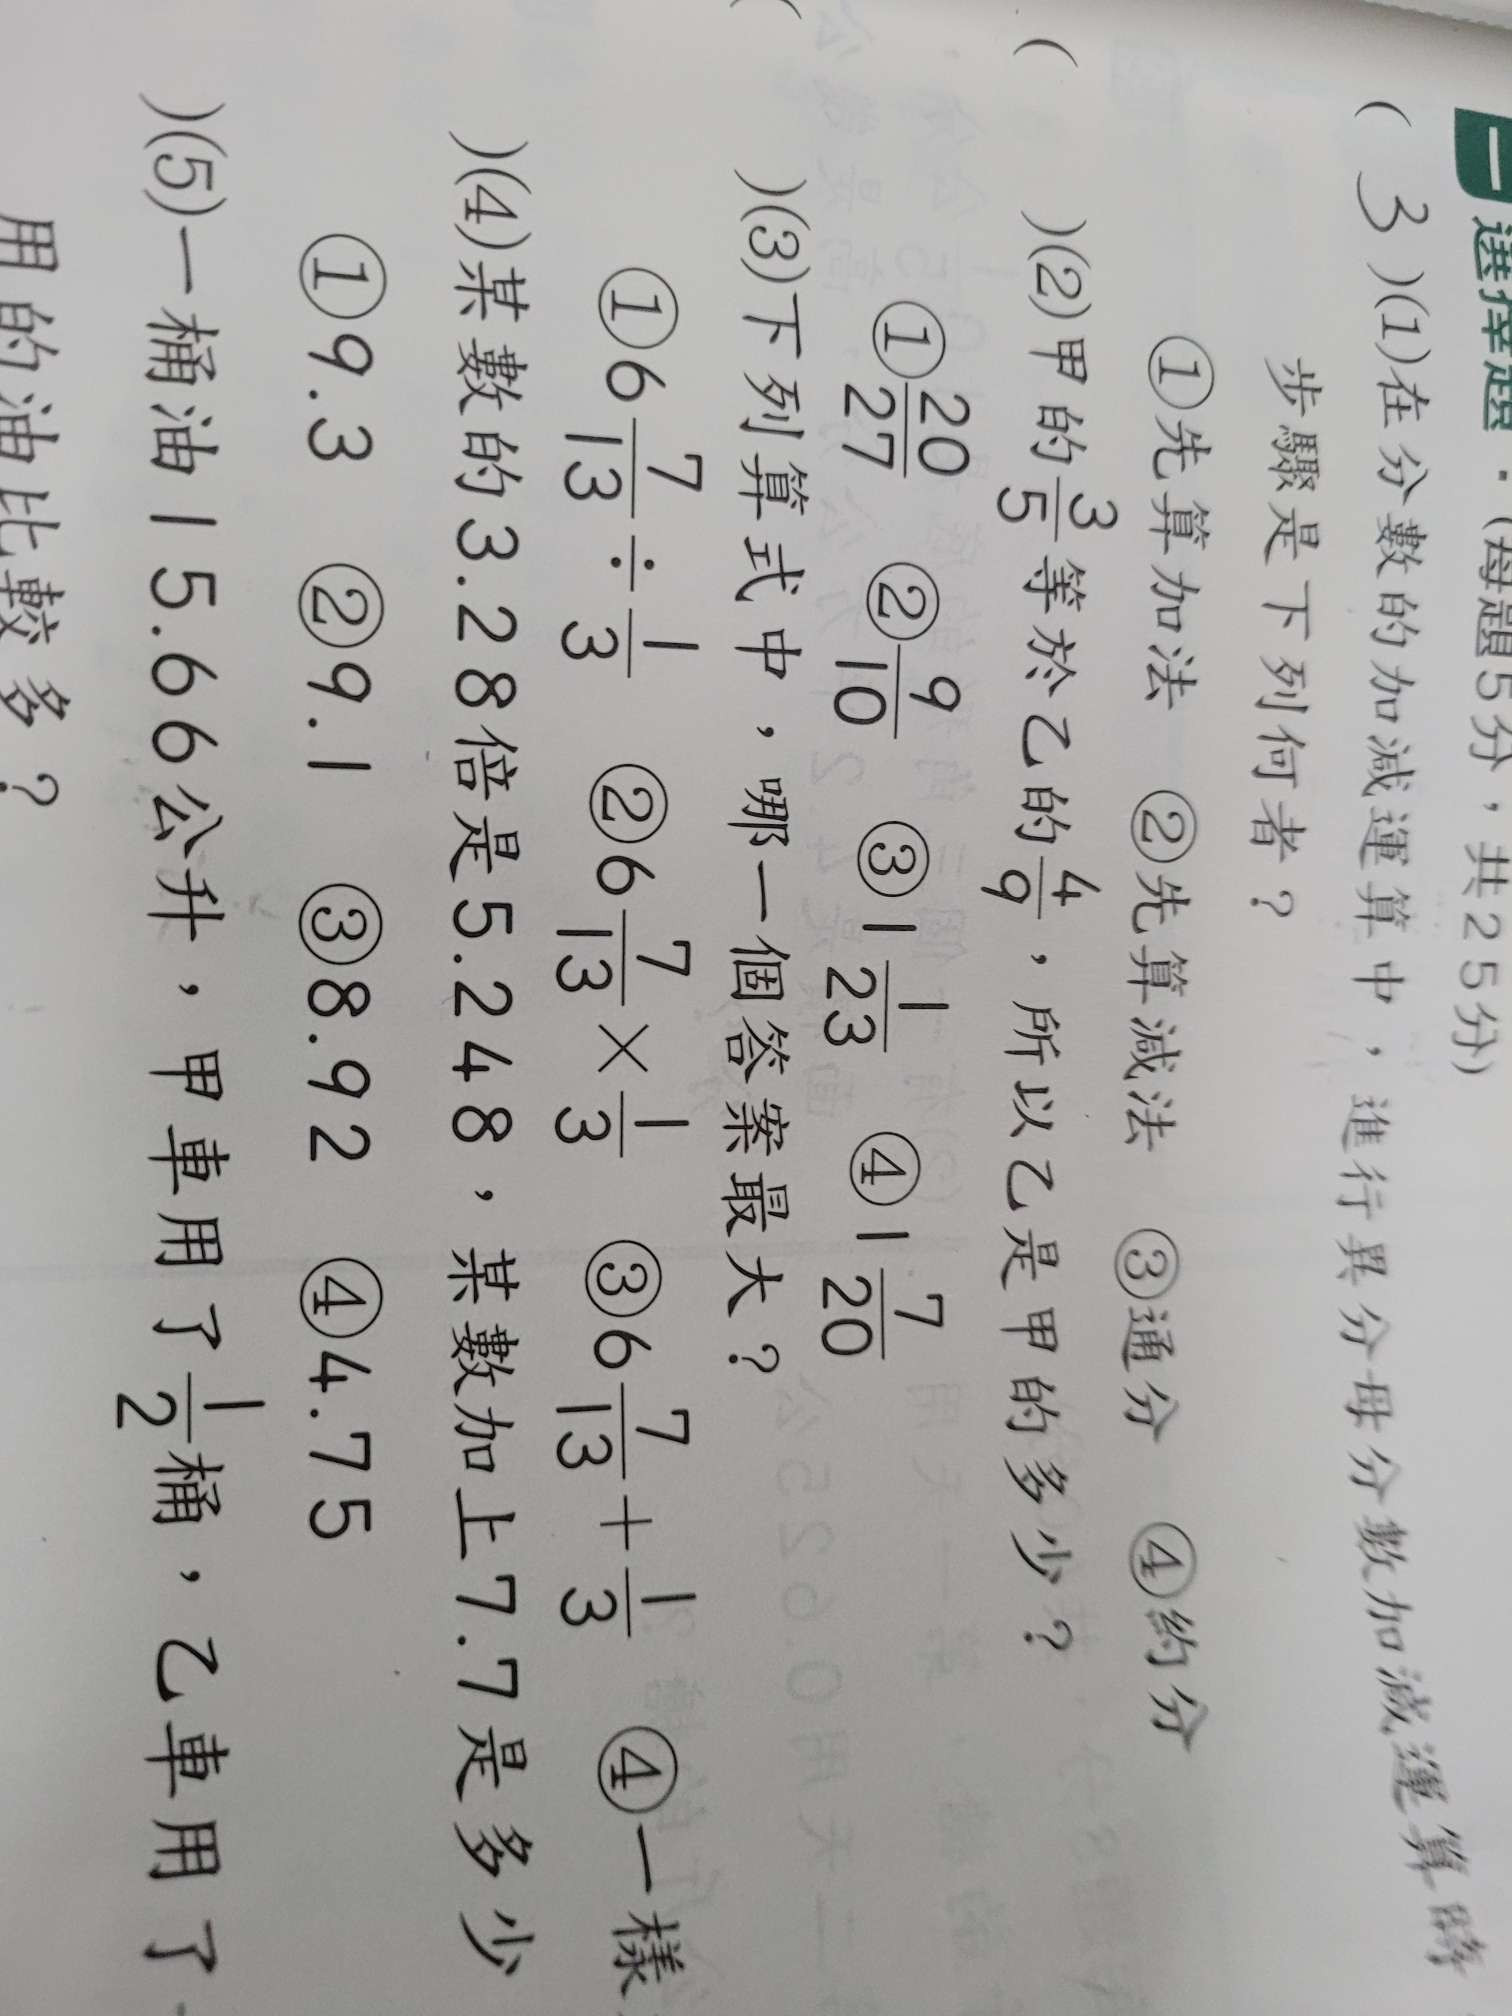 一 選擇題．(每題5分，共25分)
( 3 )(1)在分數的加減運算中，進行異分母分數加減運算時
步驟是下列何者？
①先算加法 ②先算減法 ③通分 ④約分
( )(2)甲的3/5等於乙的4/9，所以乙是甲的多少？
①20/27 ②9/10 ③1 1/23 ④1 7/20
( )(3)下列算式中，哪一個答案最大？
①6 7/13÷1/3 ②6 7/13×1/3 ③6 7/13+1/3 ④一樣
)(4)某數的3.28倍是5.248，某數加上7.7是多少
①9.3 ②9.1 ③8.92 ④4.75
)(5)一桶油15.66公升，甲車用了1/2桶，乙車用了
用的油比較多？